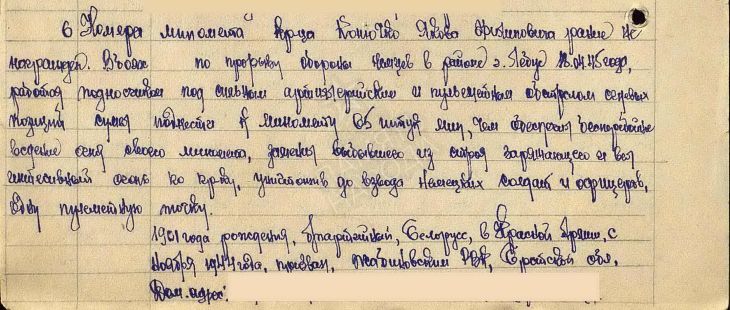 6 Номера миномета Кр-ца Конючко Якова Ефимовича ранее не
награжден. В боях по прорыву обороны немцев в районе г. Лебус 18.04.45 года,
работая подносчиком под сильным артиллерийским и пулеметным обстрелом огневых
позиций сумел поднести к миномету 65 штук мин, чем обеспечил бесперебойное
ведение огня своего миномета, заменил выбывшего из строя заряжающего и вел
интенсивный огонь по пр-ку, уничтожив до взвода немецких солдат и офицеров,
одну пулеметную точку.
1901 года рождения, б/партийный, Белорусс, в Красной Армии, с
ноября 1944 года, призван, Жабинковским РВК, Брестской обл.
Дом. адрес: